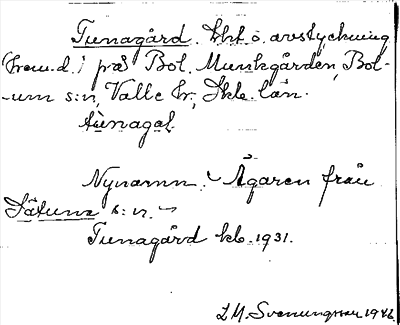 Tunagård. Lht o. avstyckning
(frem.d.) på Bol. Munkgården, Bol-
um s:n, Valle hr., Skb. län.
tùnagaḷ.
Nynamn. Ägaren från
Sätuna s:n.
Tunagård kb. 1931.
L. M. Svenungsson 1946.